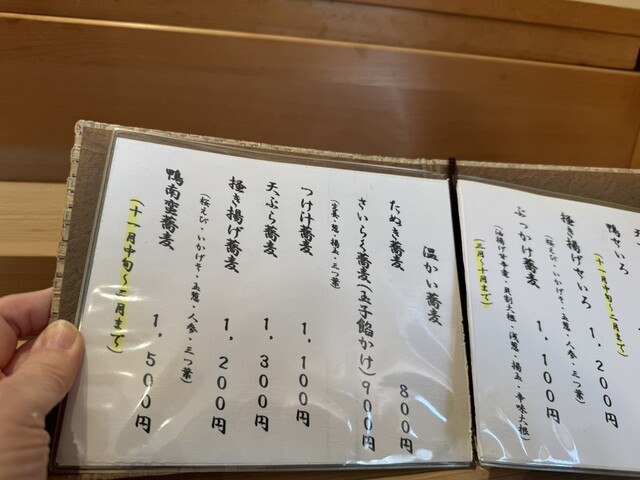 鴨せいろ 1,200円
(十一月中旬〜二月まで)
掻き揚げせいろ
(桜えび・いかげそ・玉葱・人参・三つ葉)
ぶっかけ蕎麦 1,100円
(揚げ
・浅葱・揚玉・辛味大根)
温かい蕎麦
たぬき蕎麦 800円
さいらく蕎麦(玉子餡かけ) 900円
つけ汁蕎麦 1,100円
天ぷら蕎麦 1,300円
掻き揚げ蕎麦 1,200円
(桜えび・いかげそ・玉葱・人参・三つ葉)
鴨南蛮蕎麦 1,500円
(十一月中旬〜二月まで)